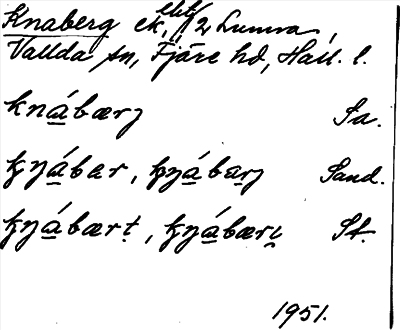 Knaberg ek, 1/2 Lunna,
Vallda sn, Fjäre hd, Hall. l.
knábærj Sa.
kŋábær, kŋábærj Sand.
kŋábært, kŋábærı St.
1951.